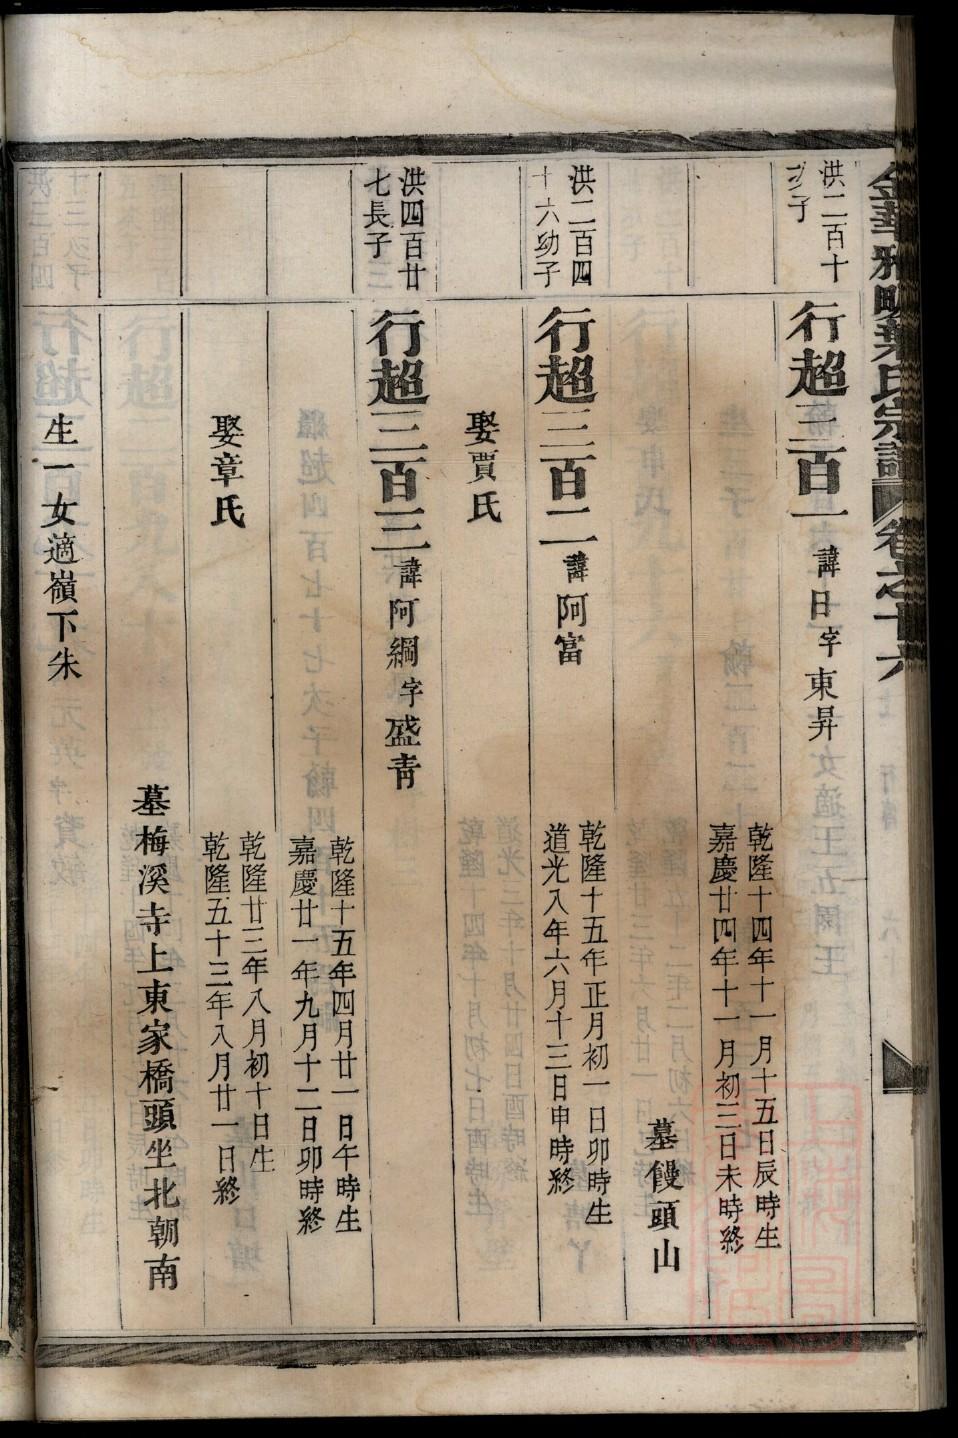 金華雅畈葉氏宗譜 卷之十六
洪二百十
次子
行超三百一 諱日字東昇
乾隆十四年十一月十五日辰時生
嘉慶廿四年十一月初三日未時終
墓饅頭山
洪二百四
十六幼子
行超三百二 諱阿富
乾隆十五年正月初一日卯時生
道光八年六月十三日申時終
娶賈氏
洪四百廿
七長子
行超三百三 諱阿綱字盛青
乾隆十五年四月廿一日午時生
嘉慶廿一年九月十二日卯時終
娶章氏
乾隆廿三年八月初十日生
乾隆五十三年八月廿一日終
墓梅溪寺上東家橋頭坐北朝南
生一女適嶺下朱